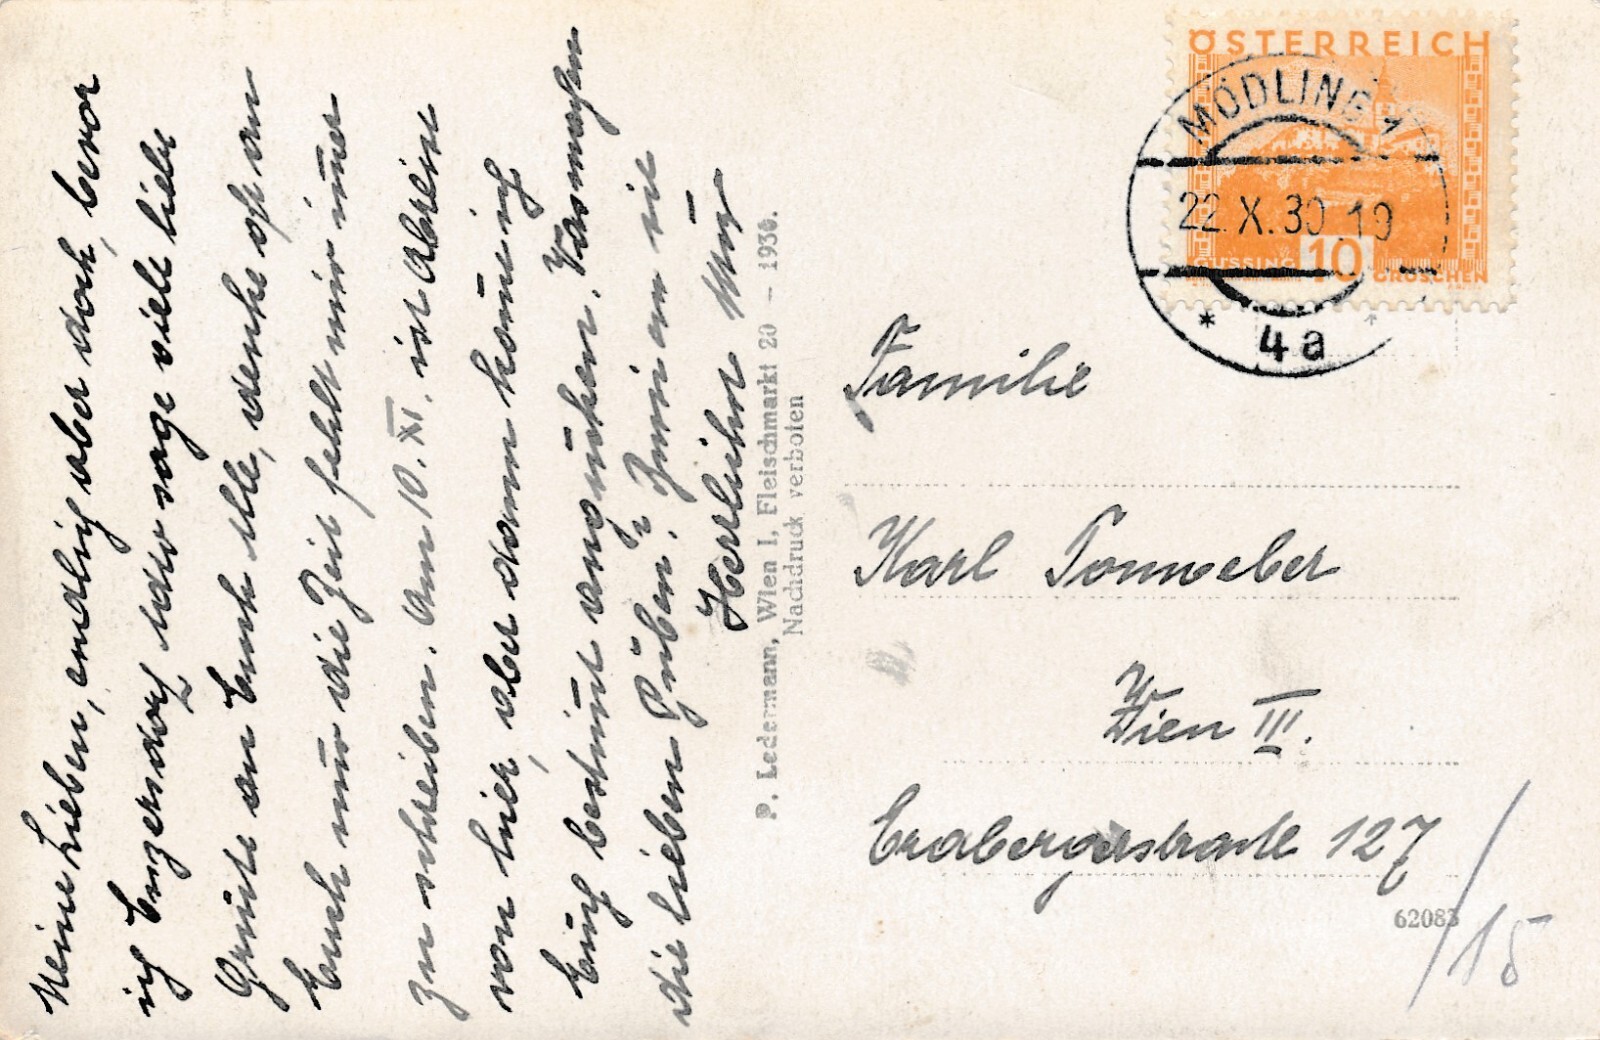 Meine Lieben, endlich aber doch, bevor
ich Enzersdorf sage viele liebe
Grüße an Euch alle, denke oft an
Euch nur die Zeit fehlt mir immer
zu schreiben. Am 10. XI. ist Abreise
von hier, aber dann komme ich
Euch bestimmt angucken. Was machen
die lieben Buben?
Herzlichst
P. Ledermann, Wien I, Fleischmarkt 20 – 1930.
Nachdruck verboten
ÖSTERREICH
MÖDLING 1
22.X.30 19
GÜSSING 10 GROSCHEN
* 4a *
Familie
Karl Sonnweber
Wien III.
Erdbergerstraße 127
/15
62083